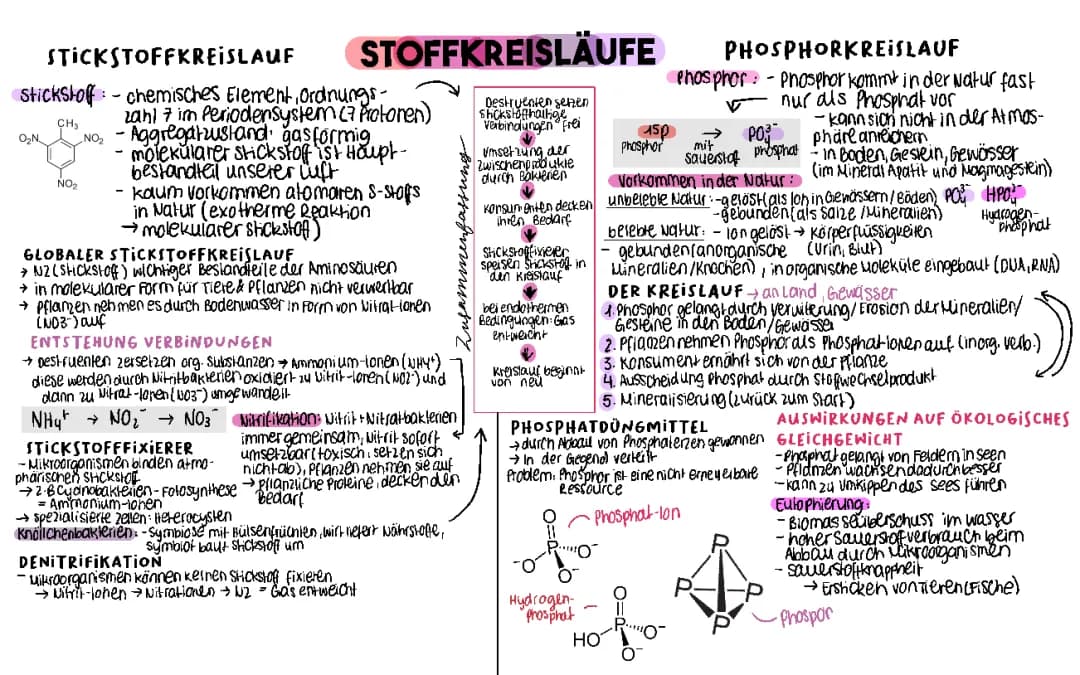 STOFFKREISLÄUFE
STICKSTOFFKREISLAUF
Stickstoff: - chemisches Element, Ordnungs-
zahl 7 im Periodensystem (7 Protonen)
- Aggregatzustand: gasförmig
- molekularer Stickstoff ist Haupt-
bestandteil unserer Luft
- kaum Vorkommen atomaren S-stoffs
in Natur (exotherme Reaktion
→ molekularer Stickstoff)
CH₃
O₂N
NO₂
NO₂
GLOBALER STICKSTOFFKREISLAUF
→ N2 (Stickstoff) wichtiger Bestandteile der Aminosäuren
→ in molekularer Form für Tiere & Pflanzen nicht verwertbar
→ Pflanzen nehmen es durch Bodenwasser in Form von Nitrat-Ionen
(NO3⁻) auf
ENTSTEHUNG VERBINDUNGEN
→ Destruenten zersetzen org. Substanzen → Ammonium-Ionen (NH4⁺)
diese werden durch Nitritbakterien oxidiert zu Nitrit-Ionen (NO2⁻) und
dann zu Nitrat-Ionen (NO3⁻) umgewandelt
NH₄⁺ → NO₂⁻ → NO₃⁻
Nitrifikation: Nitrit + Nitratbakterien
immer gemeinsam, Nitrit sofort
umsetzbar (toxisch: setzen sich
nicht ab), Pflanzen nehmen sie auf
→ pflanzliche Proteine: decken den
Bedarf
STICKSTOFFFIXIERER
- Mikroorganismen binden atmo-
phärischen Stickstoff
→ z.B Cyanobakterien - Fotosynthese
= Ammonium-Ionen
→ spezialisierte Zellen: Heterocysten
Knöllchenbakterien: - Symbiose mit Hülsenfrüchten, Wirt liefert Nährstoffe,
Symbiot baut Stickstoff um
DENITRIFIKATION
- Mikroorganismen können keinen Stickstoff fixieren
→ Nitrit-Ionen → Nitrationen → N2 = Gas entweicht
Zusammenfassung
Destruenten setzen
stickstoffhaltige
Verbindungen frei
Umsetzung der
Zwischenprodukte
durch Bakterien
Konsumenten decken
ihren Bedarf
Stickstoffixierer
speisen Stickstoff in
den Kreislauf
bei endothermen
Bedingungen: Gas
entweicht
Kreislauf beginnt
von neu
PHOSPHORKREISLAUF
Phosphor: - Phosphor kommt in der Natur fast
nur als Phosphat vor
- kann sich nicht in der Atmos-
phäre anreichern
- in Boden, Gestein, Gewässer
(im Mineral Apatit und Nogmagestein)
15P → PO₄³⁻
Phosphor mit Sauerstof Phosphat
Vorkommen in der Natur:
unbelebte Natur: - gelöst (als Ion in Gewässern / Böden) PO₄³⁻ HPO₄²⁻
- gebunden (als Salze / Mineralien) Hydrogen-
phosphat
belebte Natur: - Ion gelöst → Körperflüssigkeiten
- gebunden (anorganische (Urin, Blut)
Mineralien / Knochen), in organische Moleküle eingebaut (DNA, RNA)
DER KREISLAUF → an Land, Gewässer
1. Phosphor gelangt durch Verwitterung / Erosion der Mineralien /
Gesteine in den Boden / Gewässer
2. Pflanzen nehmen Phosphor als Phosphationen auf (inorg. Verb.)
3. Konsument ernährt sich von der Pflanze
4. Ausscheidung Phosphat durch Stoffwechselprodukt
5. Mineralisierung (zurück zum Start)
PHOSPHATDÜNGMITTEL
→ durch Abbau von Phosphaterzen gewonnen
→ In der Gegend verteilt
Problem: Phosphor ist eine nicht erneuerbare
Ressource
Phosphat-Ion
O
P
-O
O⁻
O⁻
Hydrogen-
phosphat
O
P
HO
O⁻
O⁻
P
P
P
P
Phospor
AUSWIRKUNGEN AUF ÖKOLOGISCHES
GLEICHGEWICHT
- Phaphat gelangt von Feldern in Seen
- Pflanzen wachsen dadurch besser
- kann zu Umkippen des Sees führen
Eutophierung:
- Biomasseüberschuss im Wasser
- hoher Sauerstoffverbrauch beim
Abbau durch Mikroorganismen
- Sauerstoffknappheit
→ Ersticken von Tieren (Fische)